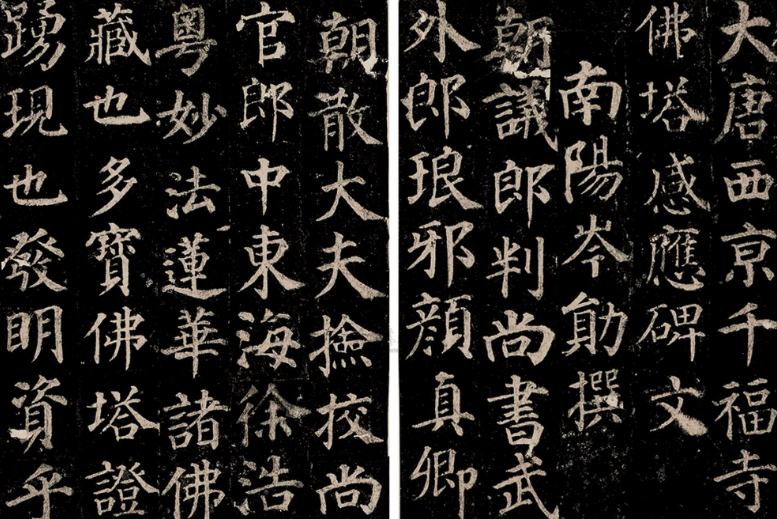 大唐西京千福寺
佛塔感應碑文
南陽岑勛撰
朝議郎判尚書武
外郎琅邪顏真卿
朝散大夫撿挍尚
官郎中東海徐浩
粵妙法蓮華諸佛
藏也多寶佛塔證
踴現也發明資乎